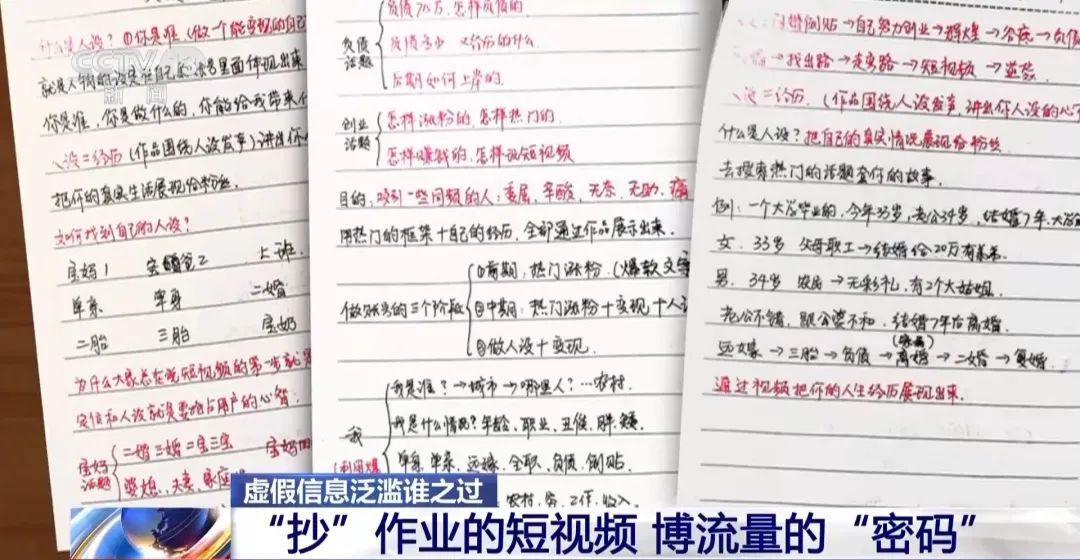 CCTV 13
新闻
什么是人设？①你是谁（做一个能变现的自己
你是谁，你是做什么的，你能给我带来
人设=经历（作品围绕人设发声）讲出你
把你的真实生活展现给粉丝。
如何找到自己的人设？
宝妈1
上班.
单亲 单身 二婚
二胎 三胎 宝奶
为什么大家总在说短视频的第一步就是
定位和人设就是要抢占用户的心智：
宝妈话题
二婚 三婚 二宝三宝 宝妈
婆媳、夫妻、家庭
负债话题
负债多少 又经历的什么
后期如何上岸的.
创业话题
怎样涨粉的，怎样热门的.
怎样赚钱的，怎样做短视频
目的：吸引一些同频的人：委屈、辛酸、无奈、无助、痛
用热门的框架+自己的经历，全部通过作品展示出来.
做账号的三个阶段
①前期：热门涨粉（爆款文字
②中期：热门涨粉+变现+人设
③做人设+变现.
我
我是谁？→城市→哪里人？…农村.
我是什么情况？年龄、职业、丑、矮、胖、矮.
单身、单亲、远嫁、全职、负债、倒贴
农村、穷、工作、收入
→自己努力创业→辉煌→
→找出路→走弯路→短视频→逆袭
人设=经历.（作品围绕人设发声，讲出你人设的心
什么是人设？把自己的真实情况展现给粉丝
去搜索热门的话题套你的故事.
例：一个大专毕业的，今年33岁，老公34岁，结婚7年.
女. 33岁 父母职工→结婚给20万有善来.
男. 34岁 农民→无彩礼，有2个大姑姐.
老公不错，跟公婆不和，结婚7年后离婚.
远嫁→三胎→负债→离婚→二婚→复婚.
通过视频把你的人生经历展现出来.
虚假信息泛滥谁之过
“抄”作业的短视频 博流量的“密码”